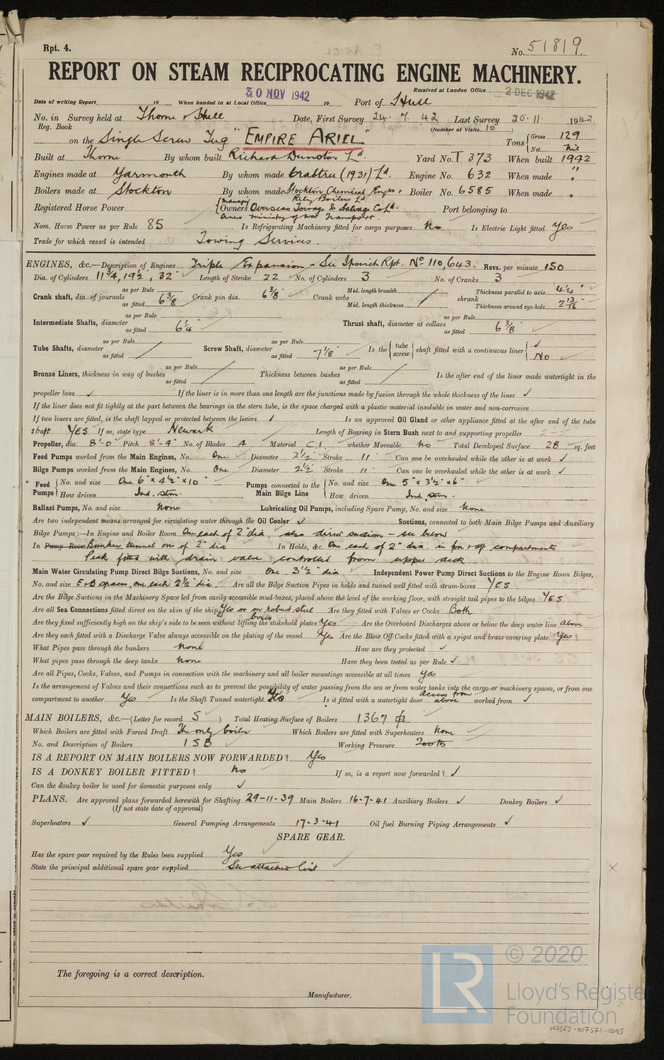 Rpt. 4.
No. 51819
REPORT ON STEAM RECIPROCATING ENGINE MACHINERY.
Received at London Office 2 DEC 1942
Date of writing Report 19 When handed in at Local Office 30 NOV 1942 19 Port of Hull
No. in Survey held at Thorne & Hull Date, First Survey 24.7.42 Last Survey 20.11 1942
Reg. Book (Number of Visits 10)
on the Single Screw Tug "EMPIRE ARIEL" Tons Gross 129 Net Nil
Built at Thorne By whom built Richard Dunston Ld. Yard No. T 373 When built 1942
Engines made at Yarmouth By whom made Crabtree (1931) Ld. Engine No. 632 When made "
Boilers made at Stockton By whom made Stockton Chemical Engrs & Riley Boilers Ld. Boiler No. 6585 When made "
Registered Horse Power Owners Overseas Towage & Salvage Co Ld. Port belonging to
Nom. Horse Power as per Rule 85 Is Refrigerating Machinery fitted for cargo purposes No Is Electric Light fitted Yes
Trade for which vessel is intended Towing Services.
ENGINES, &c.—Description of Engines Triple Expansion - See Ipswich Rpt. No 110,643. Revs. per minute 150
Dia. of Cylinders 11¾, 19½, 32" Length of Stroke 22 No. of Cylinders 3 No. of Cranks 3
Crank shaft, dia. of journals as per Rule as fitted 6⅜ Crank pin dia. 6⅜" Crank webs Mid. length breadth Mid. length thickness shrunk Thickness parallel to axis 4¼" Thickness around eye-hole
Intermediate Shafts, diameter as per Rule as fitted 6¼ Thrust shaft, diameter at collars as per Rule as fitted 6⅜
Tube Shafts, diameter as per Rule as fitted Screw Shaft, diameter as per Rule as fitted 7⅛ Is the tube screw shaft fitted with a continuous liner No
Bronze Liners, thickness in way of bushes as per Rule as fitted Thickness between bushes as per Rule as fitted Is the after end of the liner made watertight in the
propeller boss If the liner is in more than one length are the junctions made by fusion through the whole thickness of the liner
If the liner does not fit tightly at the part between the bearings in the stern tube, is the space charged with a plastic material insoluble in water and non-corrosive
If two liners are fitted, is the shaft lapped or protected between the liners Is an approved Oil Gland or other appliance fitted at the after end of the tube
shaft YES If so, state type Newark Length of Bearing in Stern Bush next to and supporting propeller
Propeller, dia. 8'-0" Pitch 8'-9" No. of Blades 4 Material C.I. whether Moveable No Total Developed Surface 28 sq. feet
Feed Pumps worked from the Main Engines, No. One Diameter 2½" Stroke 11" Can one be overhauled while the other is at work
Bilge Pumps worked from the Main Engines, No. One Diameter 2½" Stroke 11" Can one be overhauled while the other is at work
Feed Pumps No. and size One 6" × 4½" × 10" How driven Ind. stm. Pumps connected to the Main Bilge Line No. and size One 5" × 3½" × 6" How driven Ind stm.
Ballast Pumps, No. and size None Lubricating Oil Pumps, including Spare Pump, No. and size None
Are two independent means arranged for circulating water through the Oil Cooler Suctions, connected to both Main Bilge Pumps and Auxiliary
Bilge Pumps:—In Engine and Boiler Room One each of 2" dia, also direct suction - see below
In Pump Room Bunker tunnel one of 2" dia In Holds, &c. One each of 2" dia in for & aft compartments
Peak fitted with drain valve controlled from upper deck
Main Water Circulating Pump Direct Bilge Suctions, No. and size One 3½" dia Independent Power Pump Direct Suctions to the Engine Room Bilges,
No. and size E & B spaces, one each 2½" dia. Are all the Bilge Suction Pipes in holds and tunnel well fitted with strum-boxes YES
Are the Bilge Suctions in the Machinery Space led from easily accessible mud-boxes, placed above the level of the working floor, with straight tail pipes to the bilges YES
Are all Sea Connections fitted direct on the skin of the ship Yes or on robust steel boxes Are they fitted with Valves or Cocks Both
Are they fixed sufficiently high on the ship's side to be seen without lifting the stokehold plates Yes Are the Overboard Discharges above or below the deep water line above
Are they each fitted with a Discharge Valve always accessible on the plating of the vessel Yes Are the Blow Off Cocks fitted with a spigot and brass covering plate Yes
What Pipes pass through the bunkers None How are they protected
What pipes pass through the deep tanks None Have they been tested as per Rule
Are all Pipes, Cocks, Valves, and Pumps in connection with the machinery and all boiler mountings accessible at all times Yes
Is the arrangement of Valves and their connections such as to prevent the possibility of water passing from the sea or from water tanks into the cargo or machinery spaces, or from one
compartment to another Yes Is the Shaft Tunnel watertight Yes Is it fitted with a watertight door access from above worked from
MAIN BOILERS, &c.—(Letter for record S) Total Heating Surface of Boilers 1367
Which Boilers are fitted with Forced Draft The only boiler Which Boilers are fitted with Superheaters None
No. and Description of Boilers 1 SB Working Pressure 200 lb
IS A REPORT ON MAIN BOILERS NOW FORWARDED? Yes
IS A DONKEY BOILER FITTED? No If so, is a report now forwarded?
Can the donkey boiler be used for domestic purposes only
PLANS. Are approved plans forwarded herewith for Shafting 29-11-39 Main Boilers 16-7-41 Auxiliary Boilers Donkey Boilers
(If not state date of approval)
Superheaters General Pumping Arrangements 17-3-41 Oil fuel Burning Piping Arrangements
SPARE GEAR.
Has the spare gear required by the Rules been supplied Yes
State the principal additional spare gear supplied See attached list
The foregoing is a correct description.
Manufacturer.
© 2020
LR Lloyd's Register
Foundation
007363-007371-0095